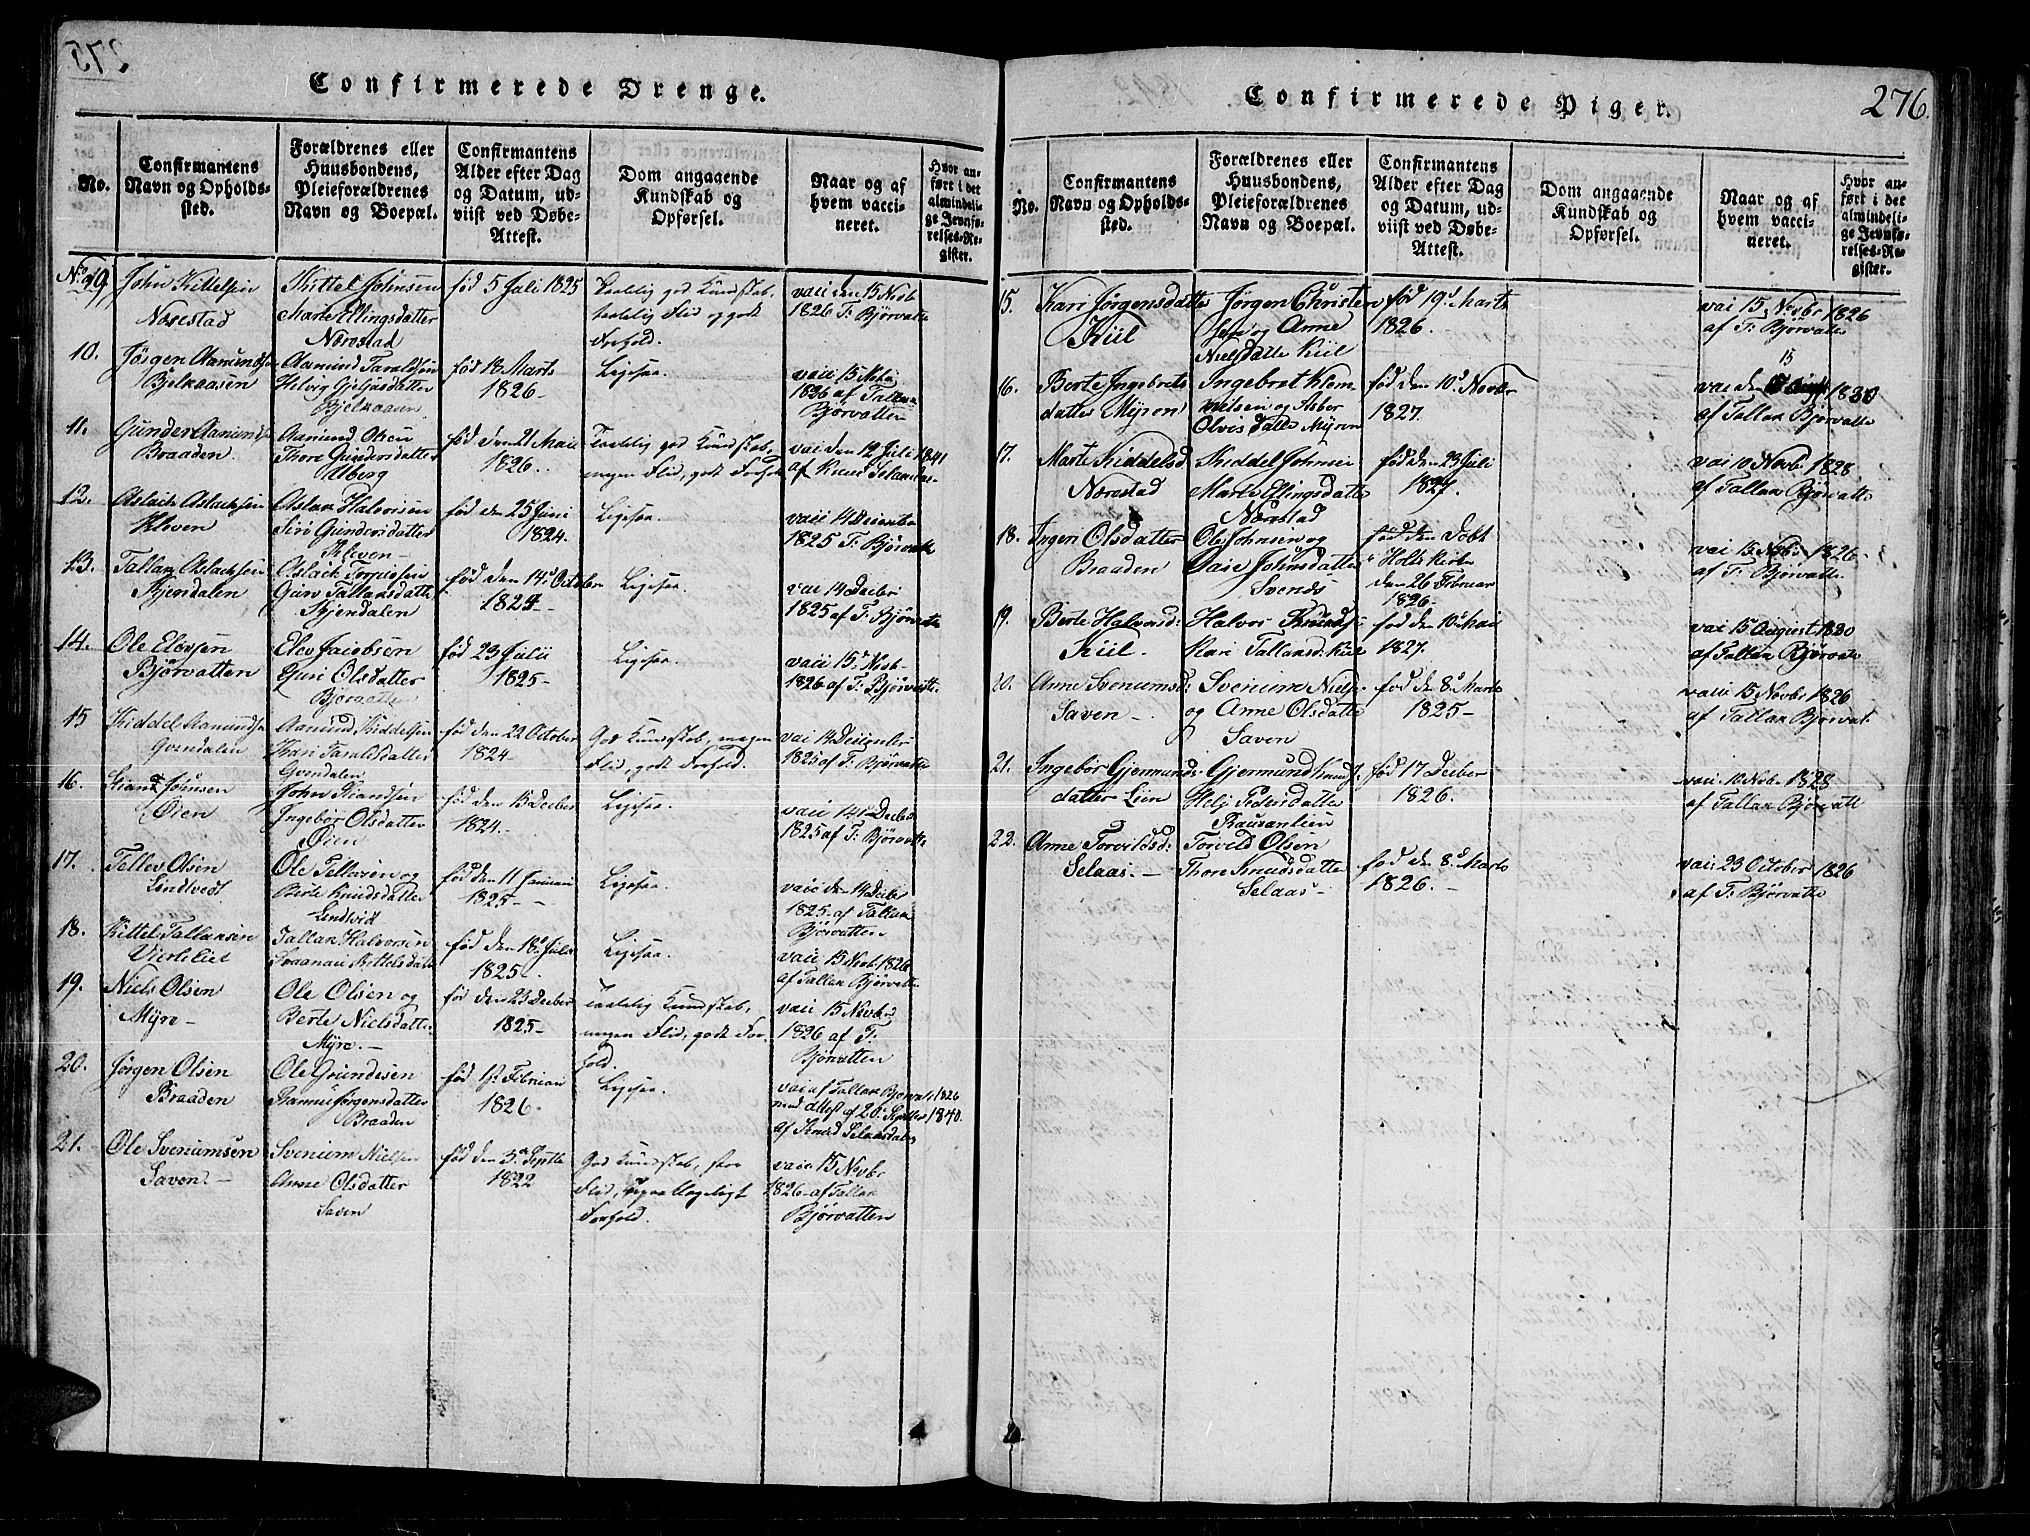 Confirmerede Drenge.
No.
Confirmantens Navn og Opholds-sted.
Forældrenes eller Huusbondens, Pleieforældrenes Navn og Boepæl.
Confirmantens Alder efter Dag og Datum, ud-viist ved Døbe-Attest.
Dom angaaende Kundskab og Opførsel.
Naar og af hvem vacci-neret.
Hvor an-ført i det almindeli-ge Jevnfø-relses-Re-gister.
No. 9. John Kittelsen
Næsestad
Kittel Johnsen
Marte Ellingsdatter
Nærestad
fød 5 Juli 1825
taalelig god Kundskab,
taalelig Flid og godt
Forhold.
vaii den 15 Novb
1826 T: Bjørvatte
10. Jørgen Aamundse
Bjelkaasen
Aamund Taraldsen
Helvig Gjeljusdatter
Bjelkaasen
fød 18 Marts
1826.
Ligesaa.
vaii 15 Nov
1826 af Tallak
Bjørvatten
11. Gunder Aamundse
Braaden
Aamund Olsen
Thore Gundersdatter
Ulberg
fød den 21 Maii
1826.
Taalelig god Kundskab,
megen Flid, godt Forhold
vai den 12 Juli 1841
af Knud
12. Aslack Aslacksen
Kleven
Aslak Halvorsen
Siri Gundersdatter
Kleven
fød den 25 Juni
1824.
Ligesaa.
vaii 14 Decembr
1825 T: Bjørvatte
13. Tallak Aslacksen
Skjendalen
Aslack Torjusen
Guro Tallaksdatte
Skjendalen
fød den 14d October
1824
Ligesaa.
vai 14 Decbr
1825 af T: Bjørvatte
14. Ole Elevsen
Bjørvatten
Elev Jacobsen
Guri Olsdatter
Bjørvatten
fød 23 Julii
1825
Ligesaa.
vaii 15d Novb
1826 af T: Bjørvatte
15 Kiddel Aamundse
Gvendalen
Aamund Kiddelsen
Kari Taraldsdatter
Gvendalen
fød den 22 October
1824
God Kundskab, megen
Flid, godt Forhold.
vai 14 December
1825 af T: Bjørvatte
16. Johnsen
Øien
John
Ingebor Olsdatter
Øien
fød den 15 Decber
1824.
Ligesaa.
vaii 14 Decb
1825 af T: Bjørvatte
17. Tellev Olsen
Lindtvedt
Ole Tellevsen og
Berte Knudsdatter
Lindtvid
fød den 11 Januari
1825
Ligesaa.
vaii den 14 Decber
1825 af Tallak
Bjørvatten
18. Kittel Tallaksen
Vierliet
Tallak Halvorsen
Kittelsdatte
fød den 18d Julii
1825
Ligesaa.
vaii 15 Novb. 1826
af Tallak Bjørvatte
19. Niels Olsen
Myre
Ole Olsen og
Berte Nielsdatter
Myre.
fød den 23 Decber
1825
Taalelig Kundskab,
megen Flid, godt For-
hold.
vaii 15 Novbr
1826 af T:
Bjørvatten
20. Jørgen Olsen
Braaden
Ole Gundesen
Jørgensdatter
Braaden
fød 1st Februari
1826.
Ligesaa.
vai af Tallak Bjørvat: 1826
med Attest af 20 Septbr 1840.
af Knud Selaasdalen
21. Ole Sveniumsen
Saven
Svenium Nielsen
Anne Olsdatter
Saven
fød den 3d Septbr
1822
God Kundskab, stor
Flid, upaaklageligt
Forhold.
vaii 15 Novbr
1826 af Tallak
Bjørvatten
Confirmerede Piger.
276.
No.
Confirmantens Navn og Opholds-sted.
Forældrenes eller Huusbondens, Pleieforældrenes Navn og Boepæl.
Confirmantens Alder efter Dag og Datum, ud-viist ved Døbe-Attest.
Dom angaaende Kundskab og Opførsel.
Naar og af hvem vacci-neret.
Hvor an-ført i det almindeli-ge Jevnfø-relses-Re-gister.
15. Kari Jørgensdatte
Kiil
Jørgen Christen
sen og Anne
Nielsdatte Kiil
fød 19d Marts
1826.
vai 15 Novbr 1826
af T: Bjørvatte
16. Berte Ingebrets
datter Myren
Ingebret Klem
metsen og Asbør
Olvisdatte Myren
fød den 10d Novbr
1827.
vai den 15 1830
af Tallak Bjørvatte
17. Marte Kiddelsd
Nærestad
Kiddel Johnsen
Marte Ellingsdatte
Nærestad
fød den 23 Juli
1827.
vai 10 Novb. 1828
af Tallak Bjørvatte
18. Ingeri Olsdatter
Braaden
Ole Johnsen og
Johnsdatte
Svends
fød den Døbt
i Holts Kirke
den 26 Februar
1826
vai 15 Novbr 1826
af T: Bjørvatte
19. Berte Halvorsd:
Kiil.
Halvor Knuds
Kari Tallaksd: Kiil
fød den 10d Mai
1827.
vai 15 August 1830
af Tallak Bjørvatte
20. Anne Sveniumsd:
Saven
Svenium Niels
og Anne Olsdatte
Saven
fød den 8d Marts
1825
vaii 15 Novbr 1826
af Tallak Bjørvat
21. Ingebor Gjermunds
datter Lien
Gjermund Knud
Helje Pedersdatte
fød 17 Decber
1826.
vaii 10 Nob. 1828
af Tallak Bjørvatte
22. Anne Torvildsd:
Selaas.
Torvild Olsen
Thore Knudsdatte
Selaas
fød den 8d Marts
1826.
vaii 23 October 1826
af T: Bjørvatte